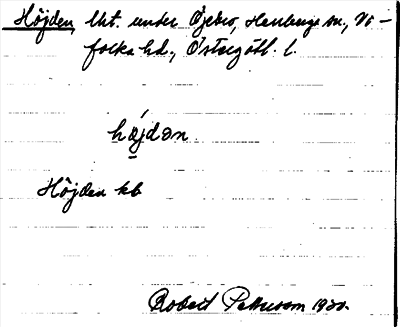 Höjden, lht. under Öjebro, Harstenge sn., Vi-
folka hd., Östergötl. l.
höjdən
Höjden kb
Robert Pettersson 1930.